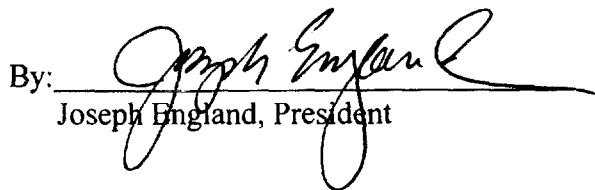 By: Joseph England
Joseph England, President